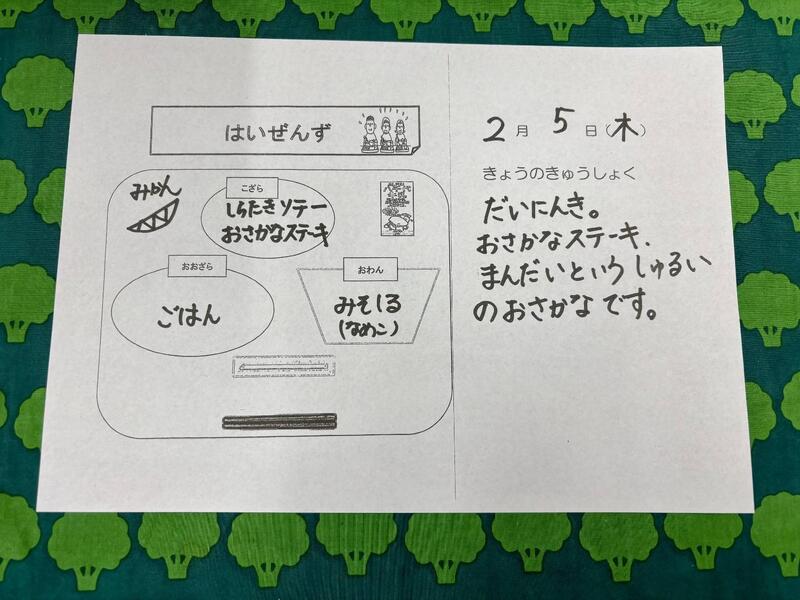 はいぜんず
みかん
こざら
しらたきソテー
おさかなステーキ
おおざら
ごはん
おわん
みそしる
(なめこ)
2月 5日(木)
きょうのきゅうしょく
だいにんき。
おさかなステーキ、
まんだいというしゅるい
のおさかなです。